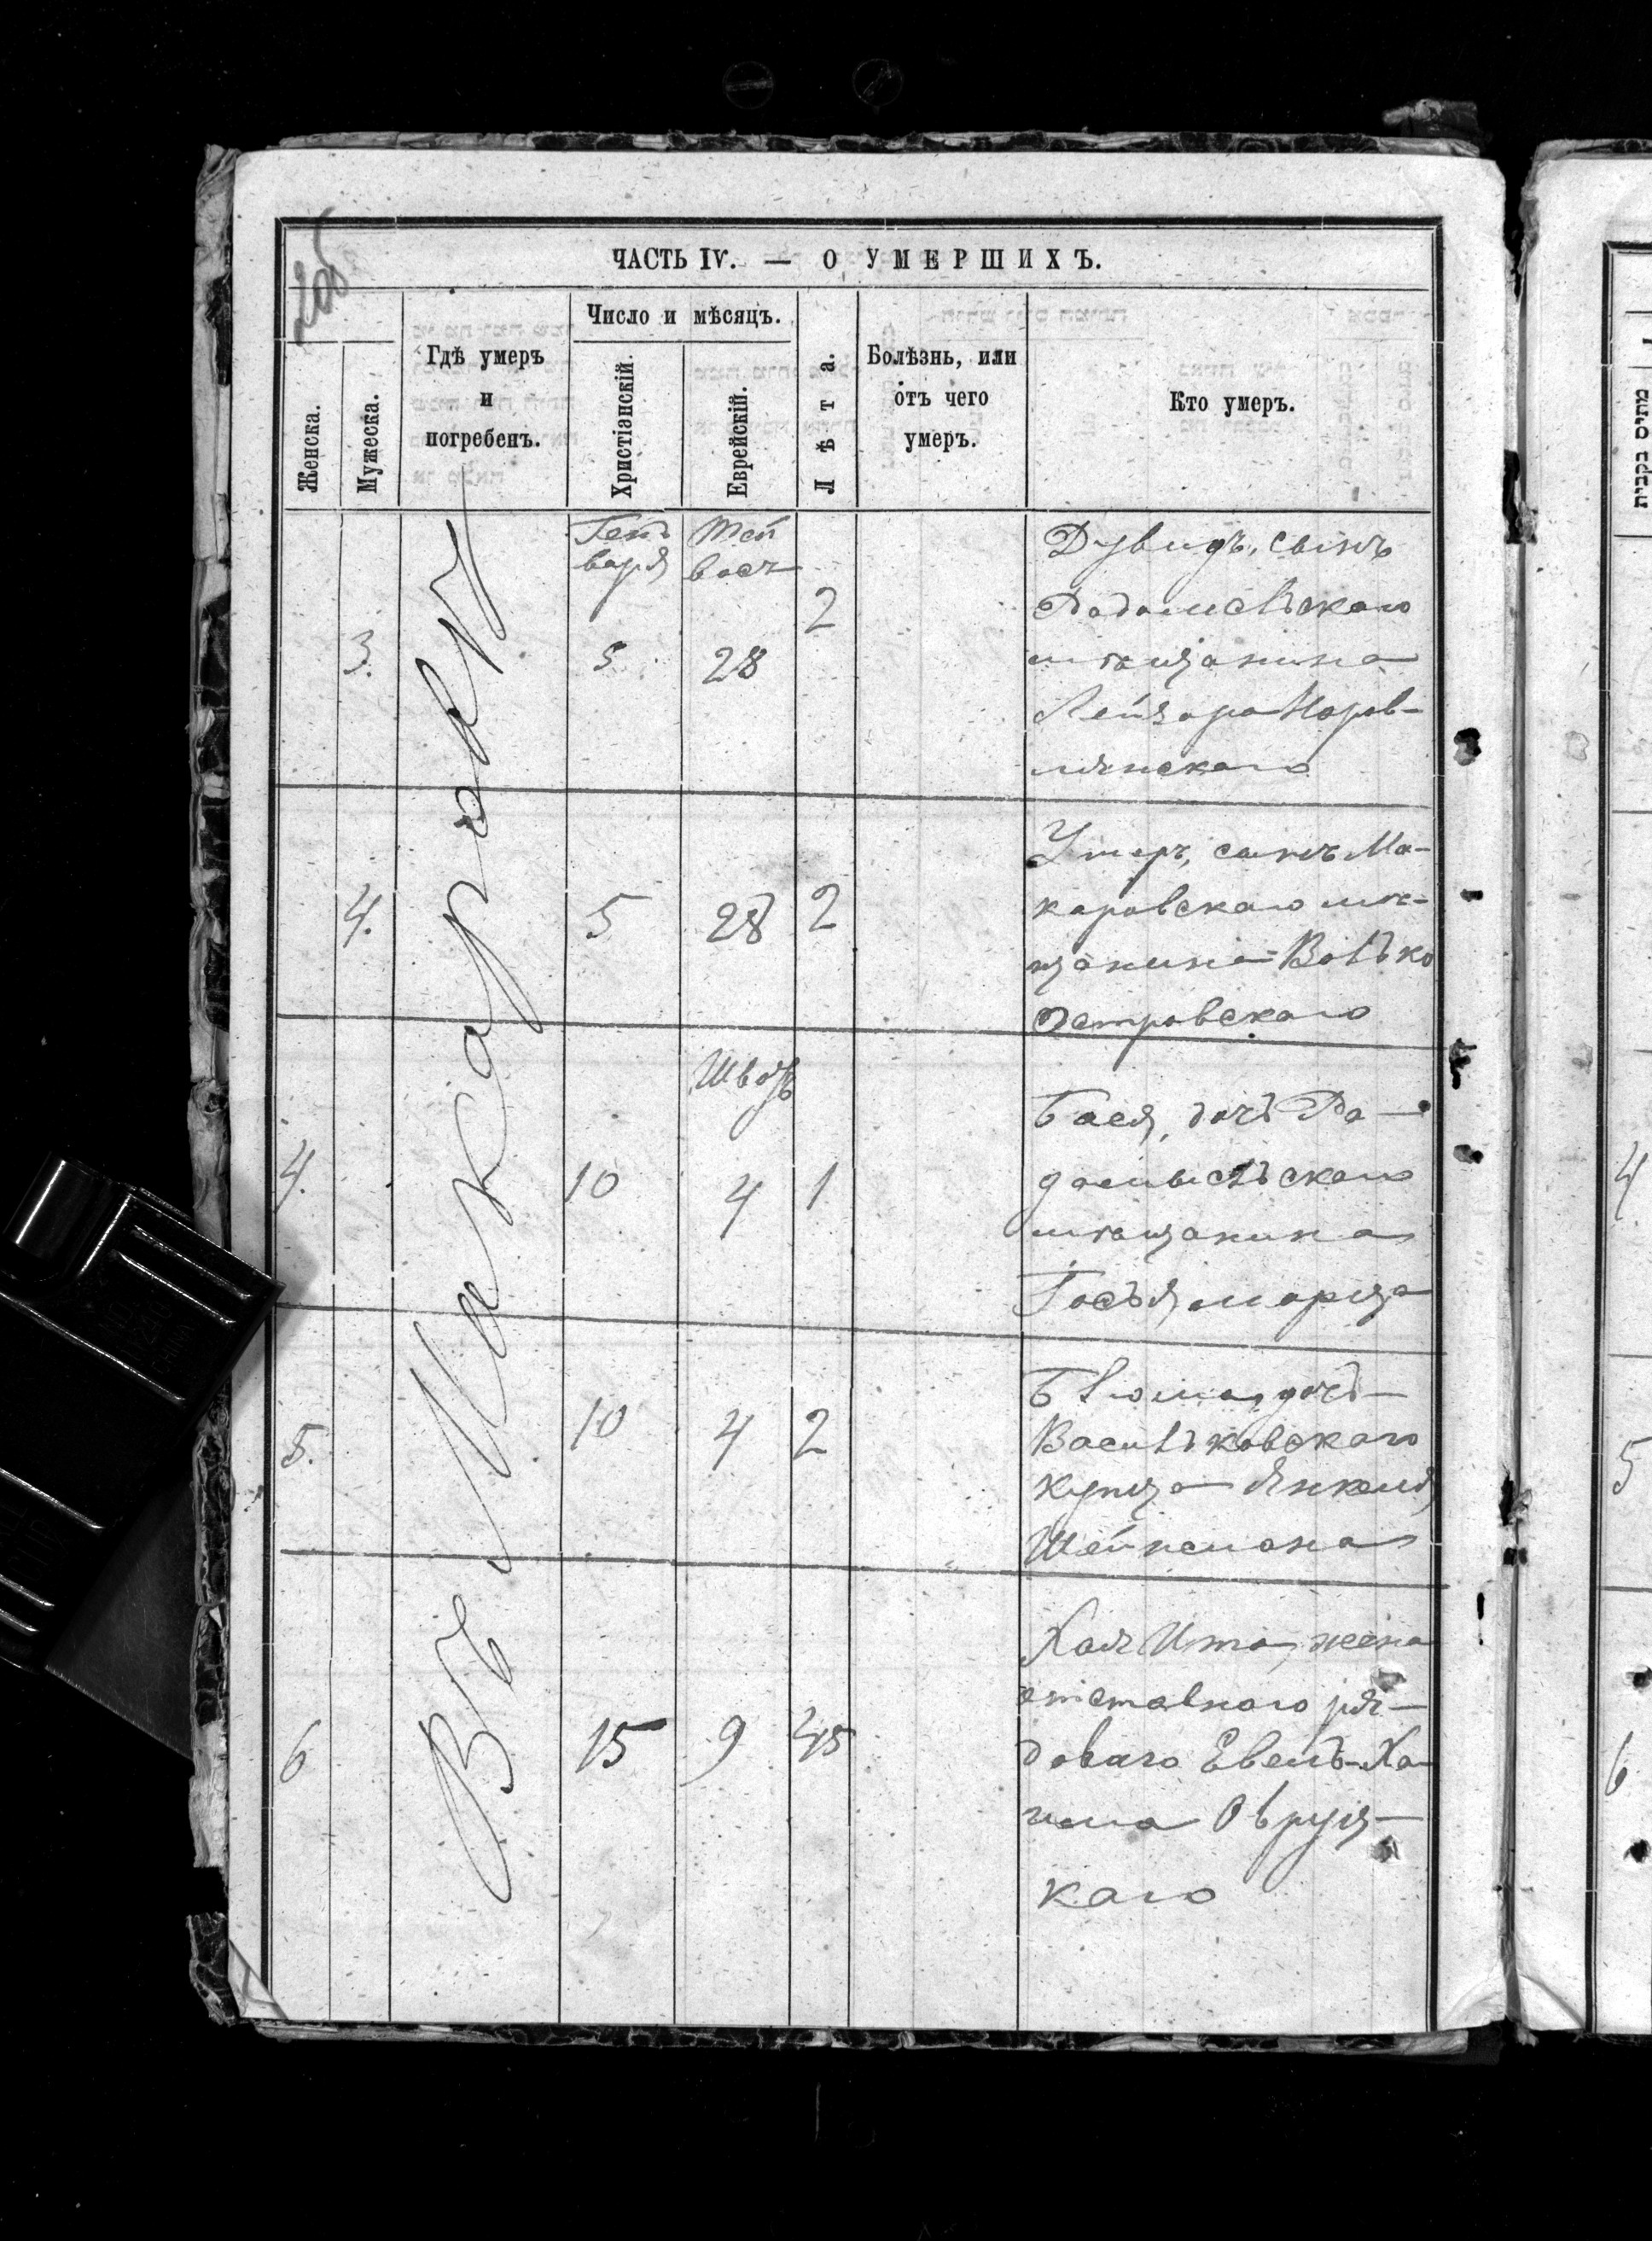 206
ЧАСТЬ IV. — О УМЕРШИХЪ.
Женска.
Мужеска.
Гдѣ умеръ
и
погребенъ.
Число и мѣсяцъ.
Христіэнскій.
Еврейскій.
Лѣта.
Болѣзнь, или
отъ чего
умеръ.
Кто умеръ.
Въ Макаровѣ
3.
Ген
варя
5
Тей
восъ
28
2
Дувидъ, сынъ
Радомсльскаго
мѣщанина
Лейзора Норов-
лянскаго
4.
5
28
2
Умеръ, сынъ Ма-
каровскаго мѣ-
щанина Волько
Островскаго
4.
10
Шватъ
4
1
Бася, дочь Ра-
домысльскаго
мѣщанина
5.
10
4
2
Блюма, дочь
Васильковскаго
купца Янкеля
Шейнемана
6
15
9
45
Хая Ита, жена
отставного ря-
доваго Евель-Ха-
има Овруц-
каго
מתים נקבות
4
5
6